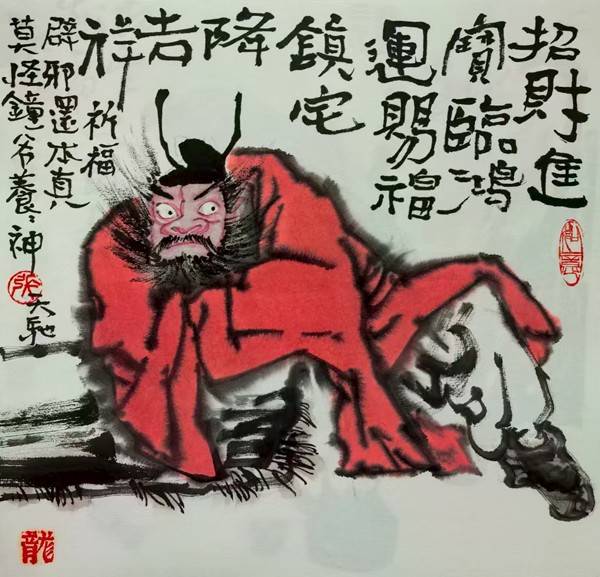 招財進
寶臨鴻
運賜福
鎮宅
降
吉
祥
祈福
辟邪還本真
莫怪鐘爷養〻神
天馳
龍